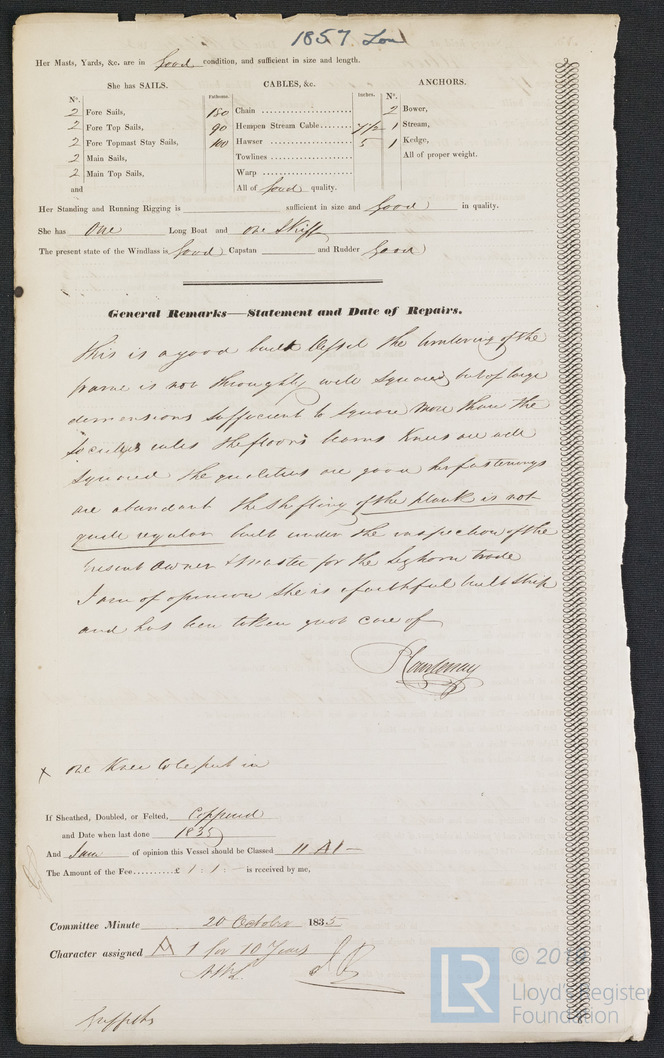 1857 Lon
Her Masts, Yards, &c. are in Good condition, and sufficient in size and length.
She has SAILS.
CABLES, &c.
ANCHORS.
N°.
Fathoms.
Inches.
N°.
2 Fore Sails, 150 Chain 2 Bower,
2 Fore Top Sails, 90 Hempen Stream Cable 7 1/2 1 Stream,
2 Fore Topmast Stay Sails, 100 Hawser 5 1 Kedge,
2 Main Sails, Towlines All of proper weight.
2 Main Top Sails, Warp
and All of Good quality.
Her Standing and Running Rigging is sufficient in size and Good in quality.
She has One Long Boat and one Skiff
The present state of the Windlass is Good Capstan and Rudder Good
General Remarks—Statement and Date of Repairs.
This is a good built Vessel the timbering of the
frame is not throughly well squared but of large
dimensions sufficient to square more than the
Societies rules the floors beams Knees are well
squared the qualities are good her fastenings
are abundant the shifting of the plank is not
quite regular built under the inspection of the
Present Owner & Master for the Leghorn trade
I am of opinion she is a faithful built Ship
and has been taken good care of
Courtenay
x one Knee put in
If Sheathed, Doubled, or Felted, Coppered
and Date when last done 1835
And I am of opinion this Vessel should be Classed 11 A1
The Amount of the Fee £ 1.1.– is received by me,
Committee Minute 20 October 1835
Character assigned A 1 for 10 Years
Griffiths
LR
Lloyd's Register
Foundation